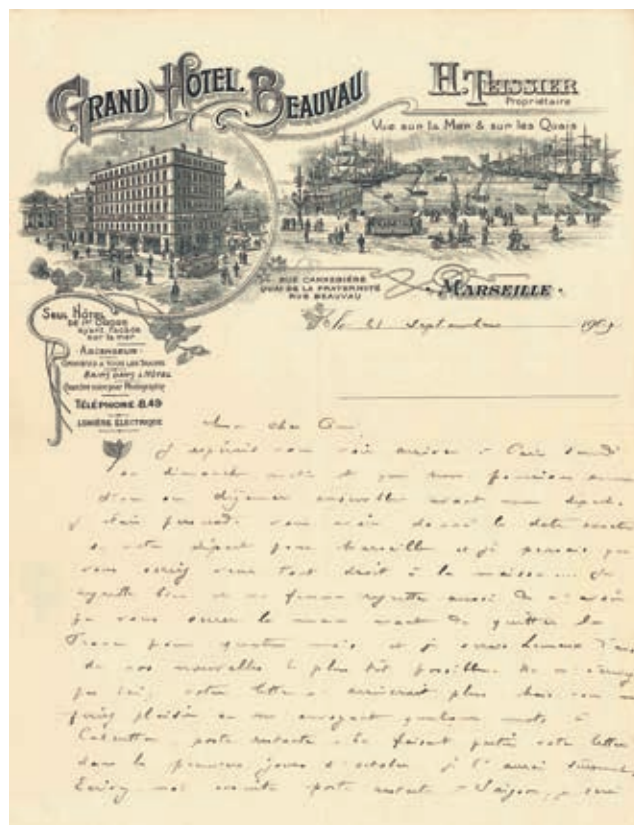 GRAND HÔTEL BEAUVAU
H. TEISSIER
Propriétaire
Vue sur la Mer & sur les Quais
RUE CANNEBIÈRE
QUAI DE LA FRATERNITÉ
RUE BEAUVAU
MARSEILLE
le 21 septembre 1909
SEUL HÔTEL
DE 1er ORDRE
ayant façade
sur la mer
ASCENSEUR
BAINS DANS L'HÔTEL
TÉLÉPHONE 8.49
LUMIÈRE ÉLECTRIQUE
Mon cher
J'espérais vous voir arriver à Paris
ou dimanche matin et que nous pourrions
déjeuner ensemble avant mon départ.
vous avoir donné la date exacte
de votre départ pour Marseille et je pensais que
vous seriez venu tout droit à la maison... Je
regrette bien et ma femme regrette aussi de n'avoir
pu vous serrer la main avant de quitter la
France pour quatre mois et je serai heureux d'avoir
de vos nouvelles le plus tôt possible. Ne m'
pas ici, votre lettre arriverait plus mais vous me
feriez plaisir en me envoyant quelques mots à
Calcutta poste restante. En faisant partir votre lettre
dans les premiers jours d'octobre je l'aurai
Ecrivez moi ensuite poste restante à Saïgon, je serai